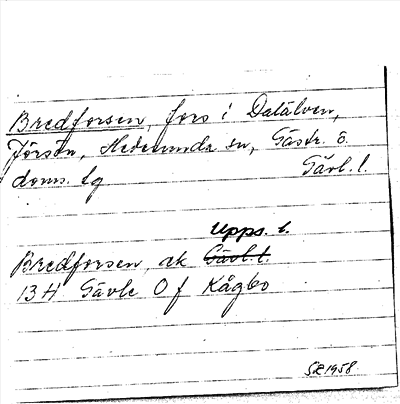 Bredforsen, fors i Dalälven,
Jörsön, Hedesunda sn, Gästr. ö.
doms. tg Gävl. l.
Upps. l.
Bredforsen, ek Gävl. l.
13 H Gävle 0 f Kågbo
SÄ 1958